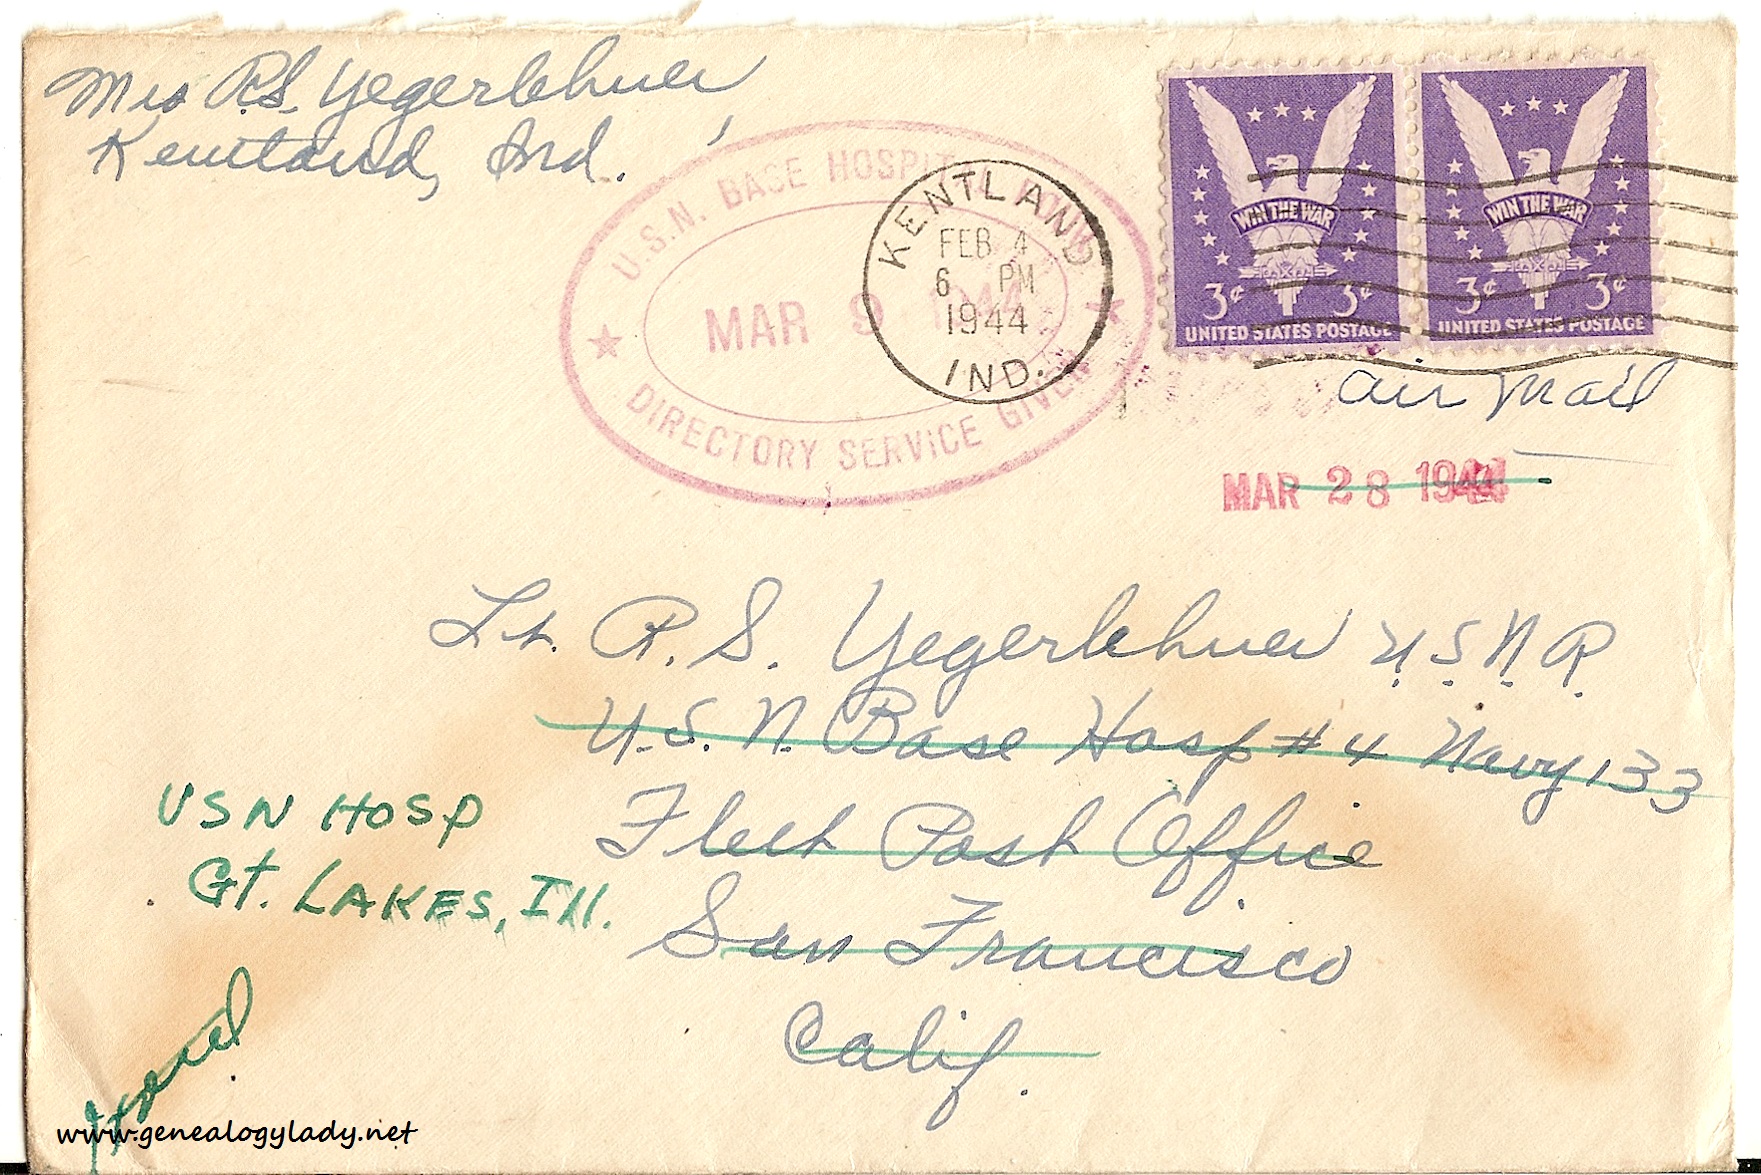 Mrs R.S. Yegerlehner
Kentland, Ind.
U.S.N. BASE HOSPITAL
MAR 9 1944
DIRECTORY SERVICE GIVEN
KENTLAND
FEB 4
6 PM
1944
IND.
WIN THE WAR
3¢ 3¢
UNITED STATES POSTAGE
WIN THE WAR
3¢ 3¢
UNITED STATES POSTAGE
Air Mail
MAR 28 1944
Lt. R. S. Yegerlehner U.S.N.R.
U.S.N. Base Hosp #4 Navy 133
Fleet Post Office
San Francisco
Calif.
USN HOSP
Gt. LAKES, Ill.
www.genealogylady.net